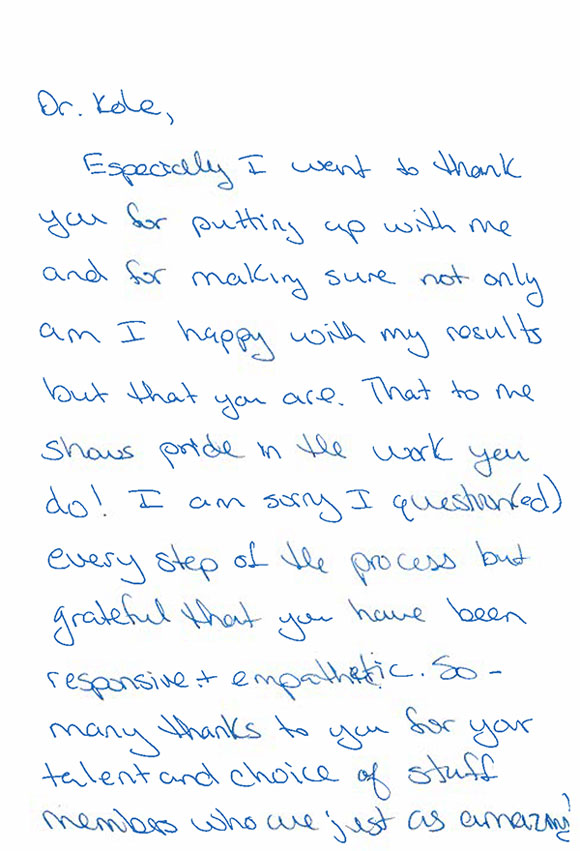 Dr. Kole,
Especially I want to thank
you for putting up with me
and for making sure not only
am I happy with my results
but that you are. That to me
shows pride in the work you
do! I am sorry I question(ed)
every step of the process but
grateful that you have been
responsive + empathetic. So -
many thanks to you for your
talent and choice of stuff
members who are just as amazing!